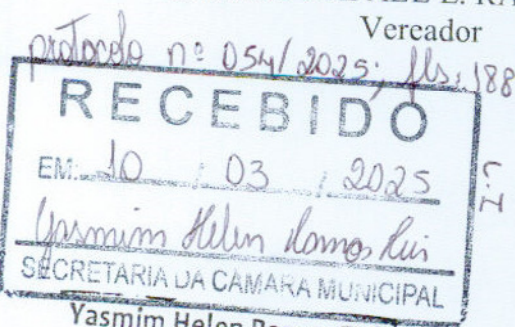 Vereador
protocolo nº 054/2025; fls. 188
RECEBIDO
EM: 10 / 03 / 2025
Yasmim Helen Ramos
SECRETARIA DA CÂMARA MUNICIPAL
Yasmim Helen